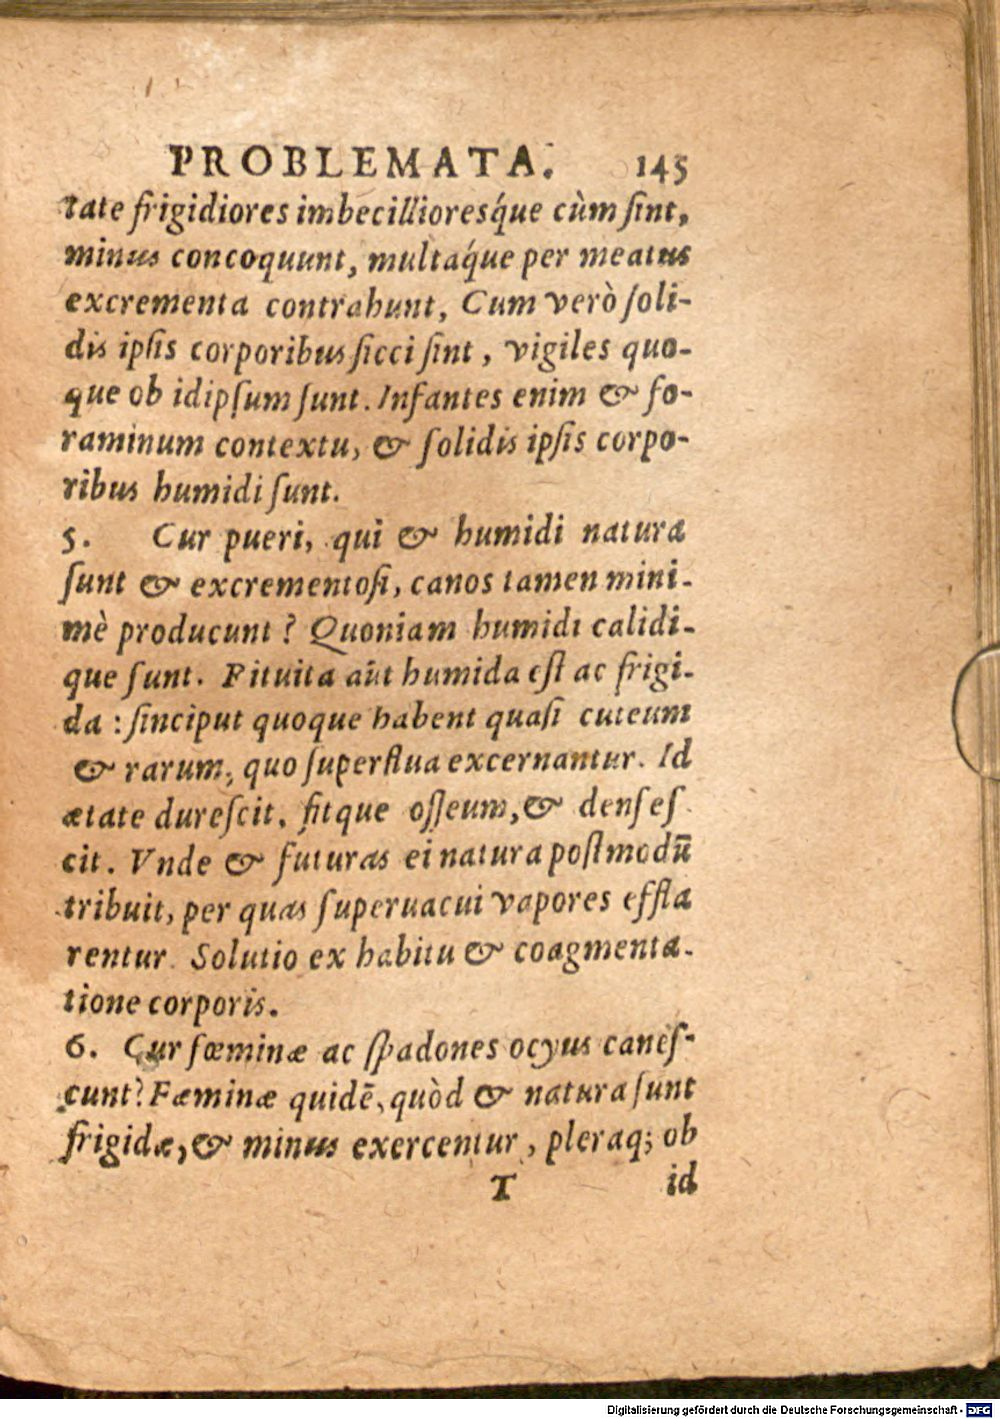 PROBLEMATA. 145
tate frigidiores imbecillioresq́ue cùm ſint,
minus concoquunt, multaq́ue per meatus
excrementa contrahunt, Cum verò ſoli-
dis ipſis corporibus ſicci ſint, vigiles quo-
que ob idipſum ſunt. Infantes enim & fo-
raminum contextu, & ſolidis ipſis corpo-
ribus humidi ſunt.
5. Cur pueri, qui & humidi natura
ſunt & excrementoſi, canos tamen mini-
mè producunt? Quoniam humidi calidi-
que ſunt. Pituita aūt humida eſt ac frigi-
da: ſinciput quoque habent quaſi cuteum
& rarum, quo ſuperflua excernantur. Id
ætate dureſcit, fitque oſſeum, & denſeſ
cit. Vnde & futuras ei natura poſtmodū
tribuit, per quas ſuperuacui vapores effla
rentur. Solutio ex habitu & coagmenta-
tione corporis.
6. Cur fœminæ ac ſpadones ocyus caneſ-
cunt? Fæminæ quidē, quòd & natura ſunt
frigidæ, & minus exercentur, pleraq; ob
T id
Digitalisierung gefördert durch die Deutsche Forschungsgemeinschaft - DFG